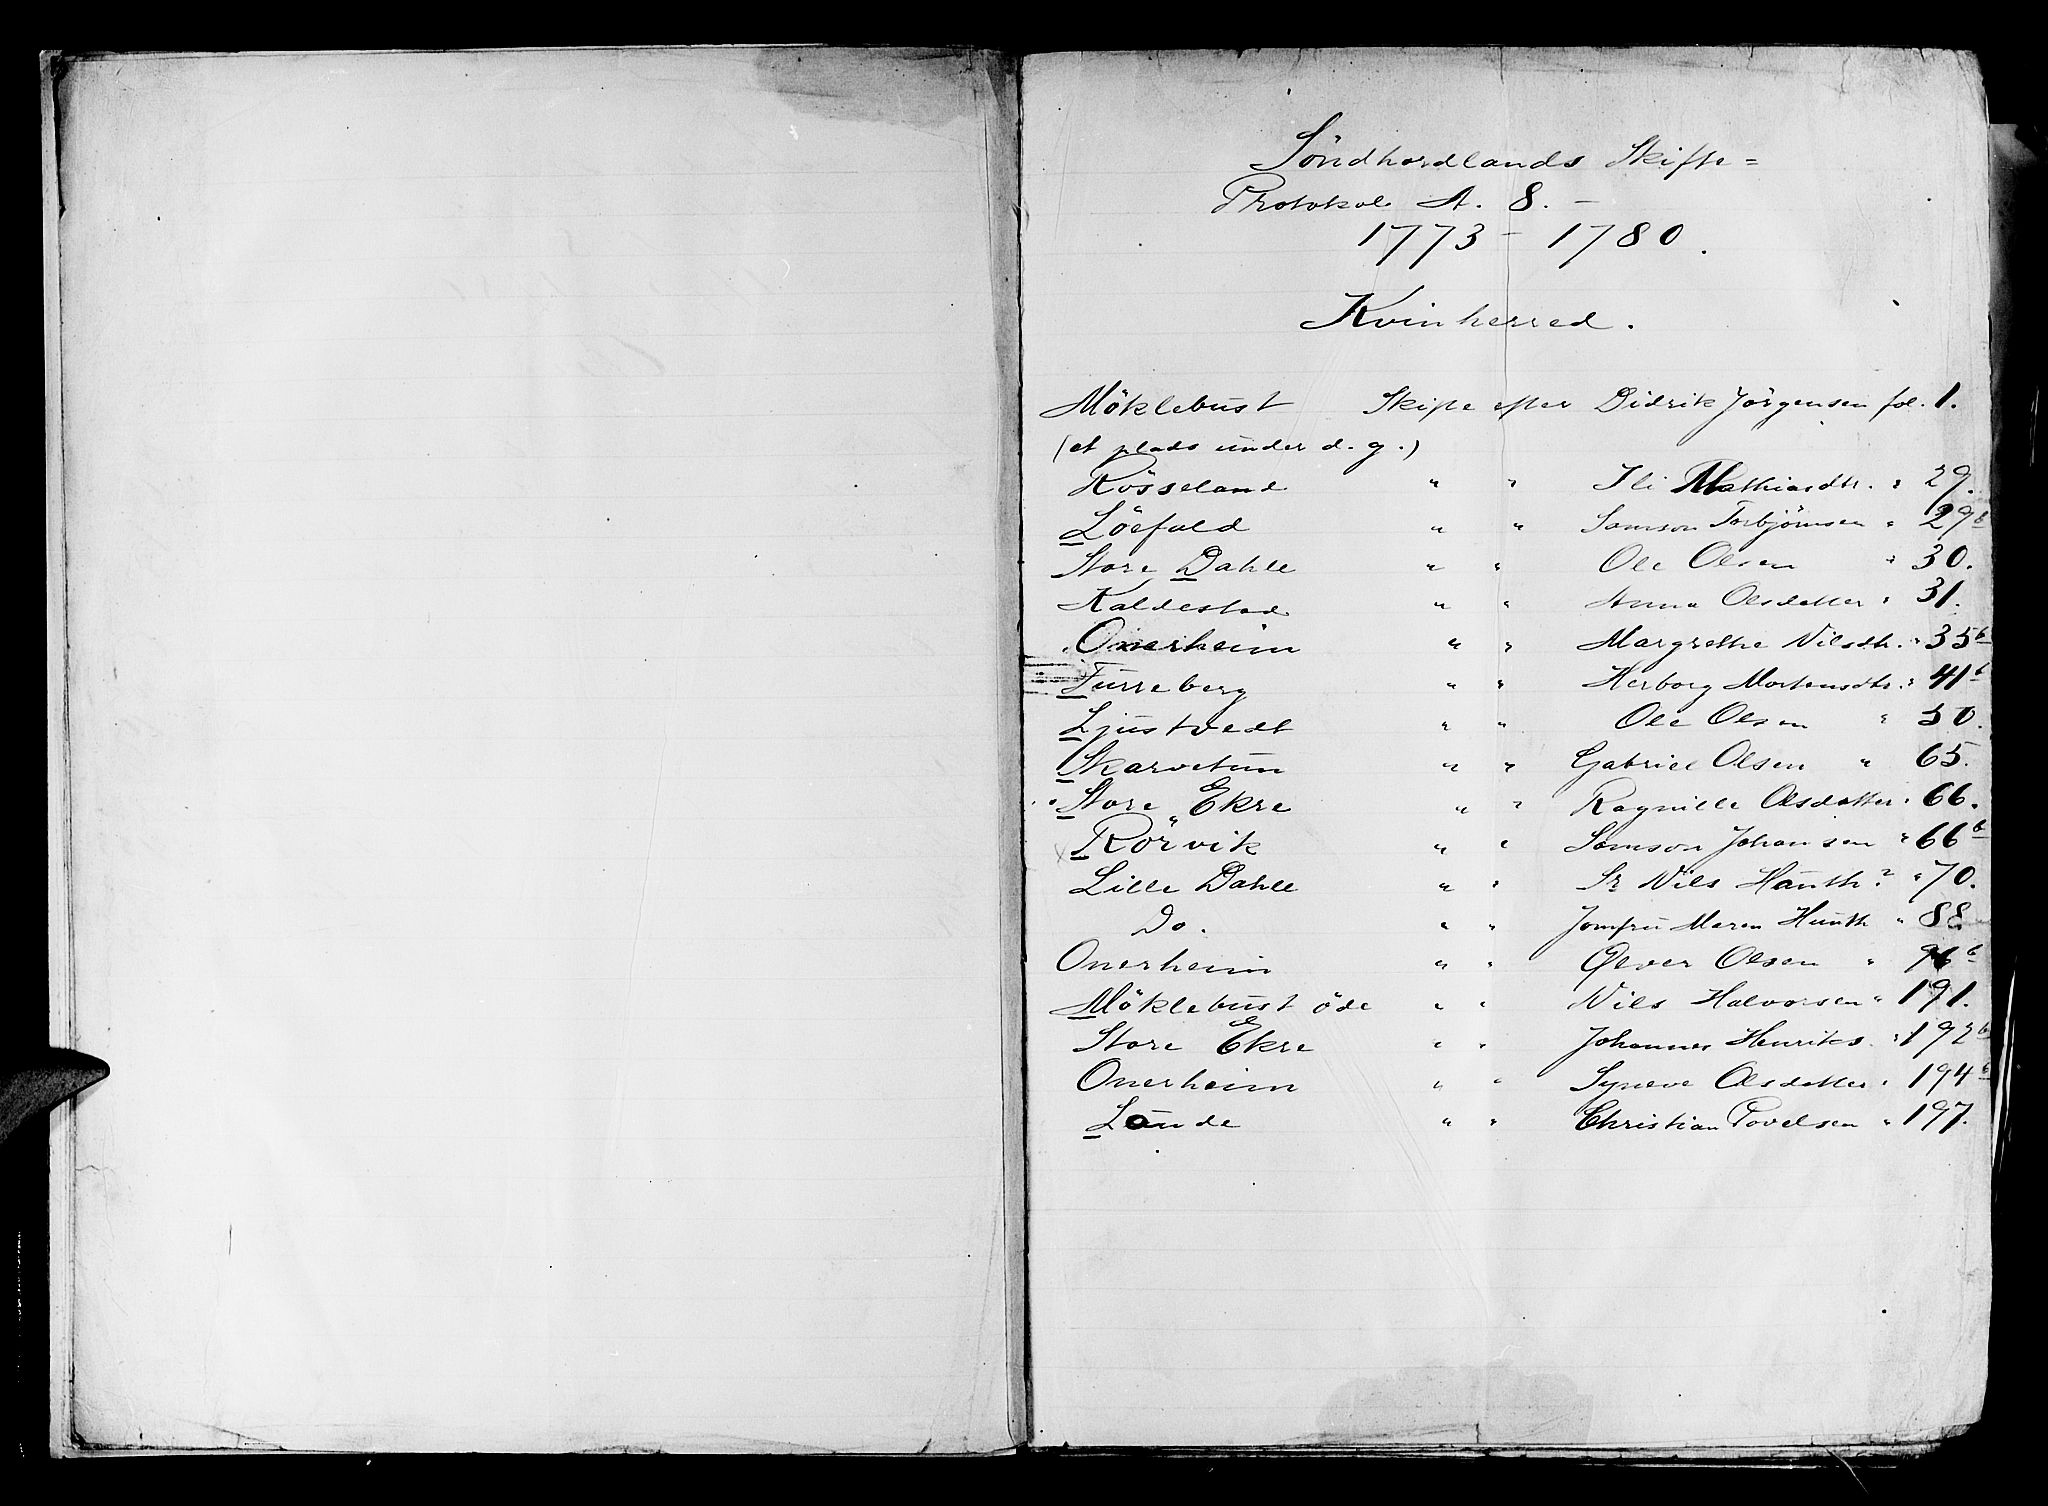 Söndhordlands Skifte=
Protokol A. 8. –
1773 – 1780.
Kvinherred.
Möklebust Skifte efter Didrik Jörgensen fol. 1.
(et plads under d. g.)
Rösseland " " Ili Mathiasdtr. " 29.
Löefald " " Samson Torbjörnsen " 29b
Store Dahle " " Ole Olsen " 30.
Kaldestad " " Anna Olsdatter " 31.
Onerheim " " Margrethe Nilsdtr. " 35b
Furreberg " " Herborg Mortensdtr. " 41b
Ljustvedt " " Ole Olsen " 50.
Skarvetun " " Gabriel Olsen " 65.
Store Ekre " " Ragnille Olsdatter " 66.
Rörvik " " Samson Johansen " 66b
Lille Dahle " " Sr Nils Hanth? " 70.
Do. " " Jomfru Maren Hunth " 88.
Onerheim " " Ølver Olsen " 96b
Möklebust öde " " Nils Halvorsen " 191.
Store Ekre " " Johannes Henriks. " 192b
Onerheim " " Syneve Olsdatter " 194b
Lande " " Christian Povelsen " 197.